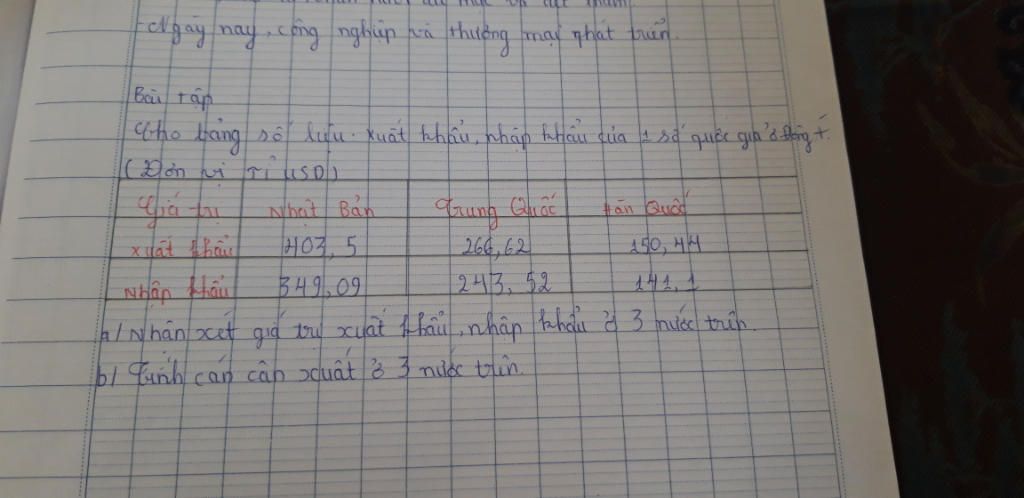 -Ngày nay, công nghiệp và thương mại phát triển.
Bài tập
Cho bảng số liệu xuất khẩu, nhập khẩu của 1 số quốc gia ở Đông Á.
(Đơn vị Tỉ USD)
Giá trị Nhật Bản Trung Quốc Hàn Quốc
xuất khẩu 403,5 266,62 150,44
Nhập khẩu 349,09 243,52 141,1
a/ Nhận xét giá trị xuất khẩu, nhập khẩu ở 3 nước trên.
b/ Tính cán cân xuất ở 3 nước trên.